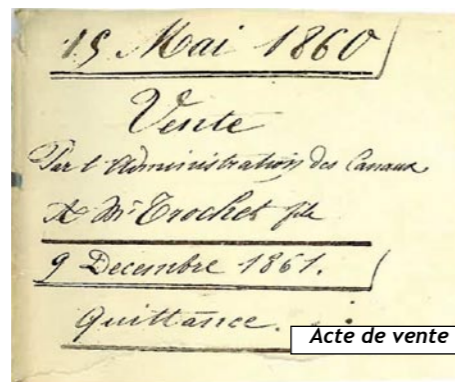 15 Mai 1860
Vente
Par l'Administration des Canaux
A Mr. Trochet fils
9 Decembre 1861.
Quittance.
Acte de vente